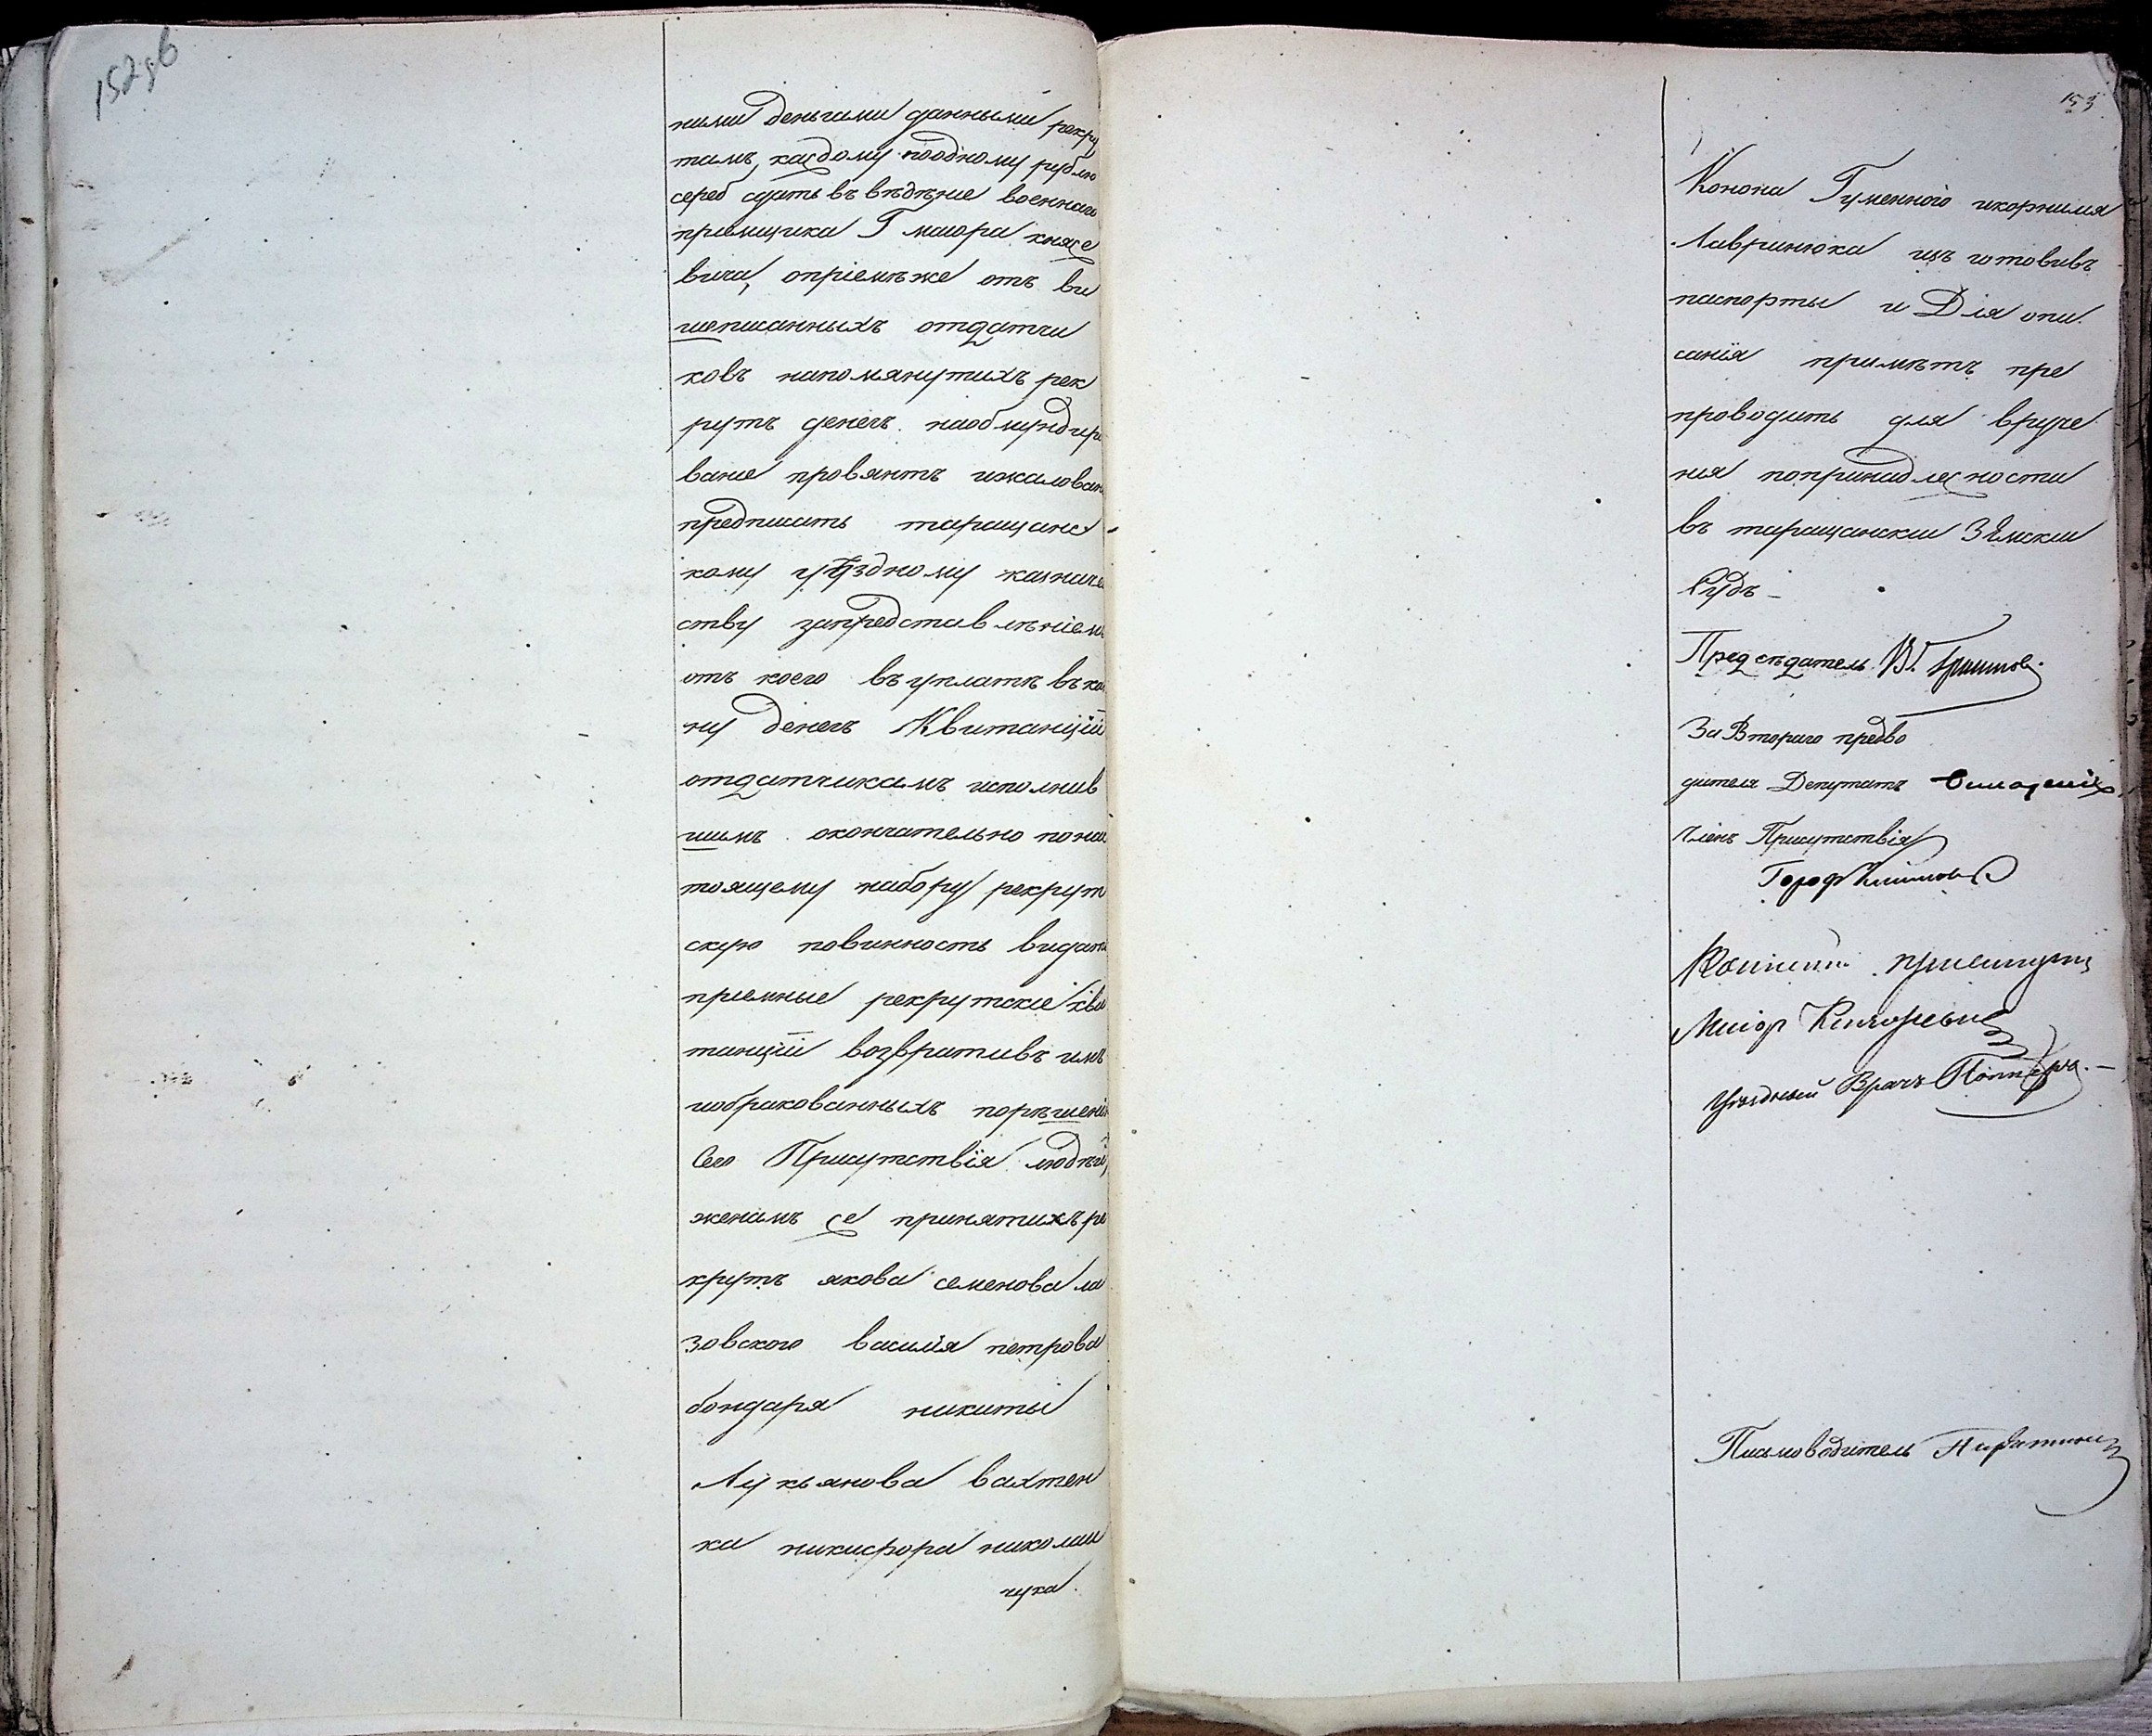 152 зв
ними деньгами данными рекру
тамъ, каждому поодному рублю
сереб сдать въ вѣдѣние военнаго
приемщика Г маіора княже
вича, опріемѣже отъ ви
шеписанныхъ отдатчи
ковъ напомянутихъ рек
рутъ денегъ наобмундиро
вание провянтъ ижалован
предписать таращанс
кому уѣздному казначе
ству запредставлѣніемъ
отъ коего въ уплатѣ въ каз
ну денегъ Квитанцій
отдатчикамъ исполнив
шимъ окончательно понас
тоящему набору рекрут
скую повинность видать
приемные рекрутские кви
танцій возвративъ имъ
иобракованныхъ порѣшенію
Сего Присутствія людѣй,
женамъ же принятихъ ре
крутъ якова семенова ла
зовского василія петрова
бондаря никиты
Лукьянова вахтен
ка никифора николай
чука.
153
Конона Гуменного икорнилия
Лавринюка изъ готовивъ
паспорты и Для опи
санія примѣтъ пре
проводить для вруче
ния попринадлежности
въ таращански Земски
Судъ
Предсѣдатель
За Втораго предво
дителя Депутатъ
Членъ Присутствія
Город
Маіор
Уѣздный Врачъ
Письмоводитель